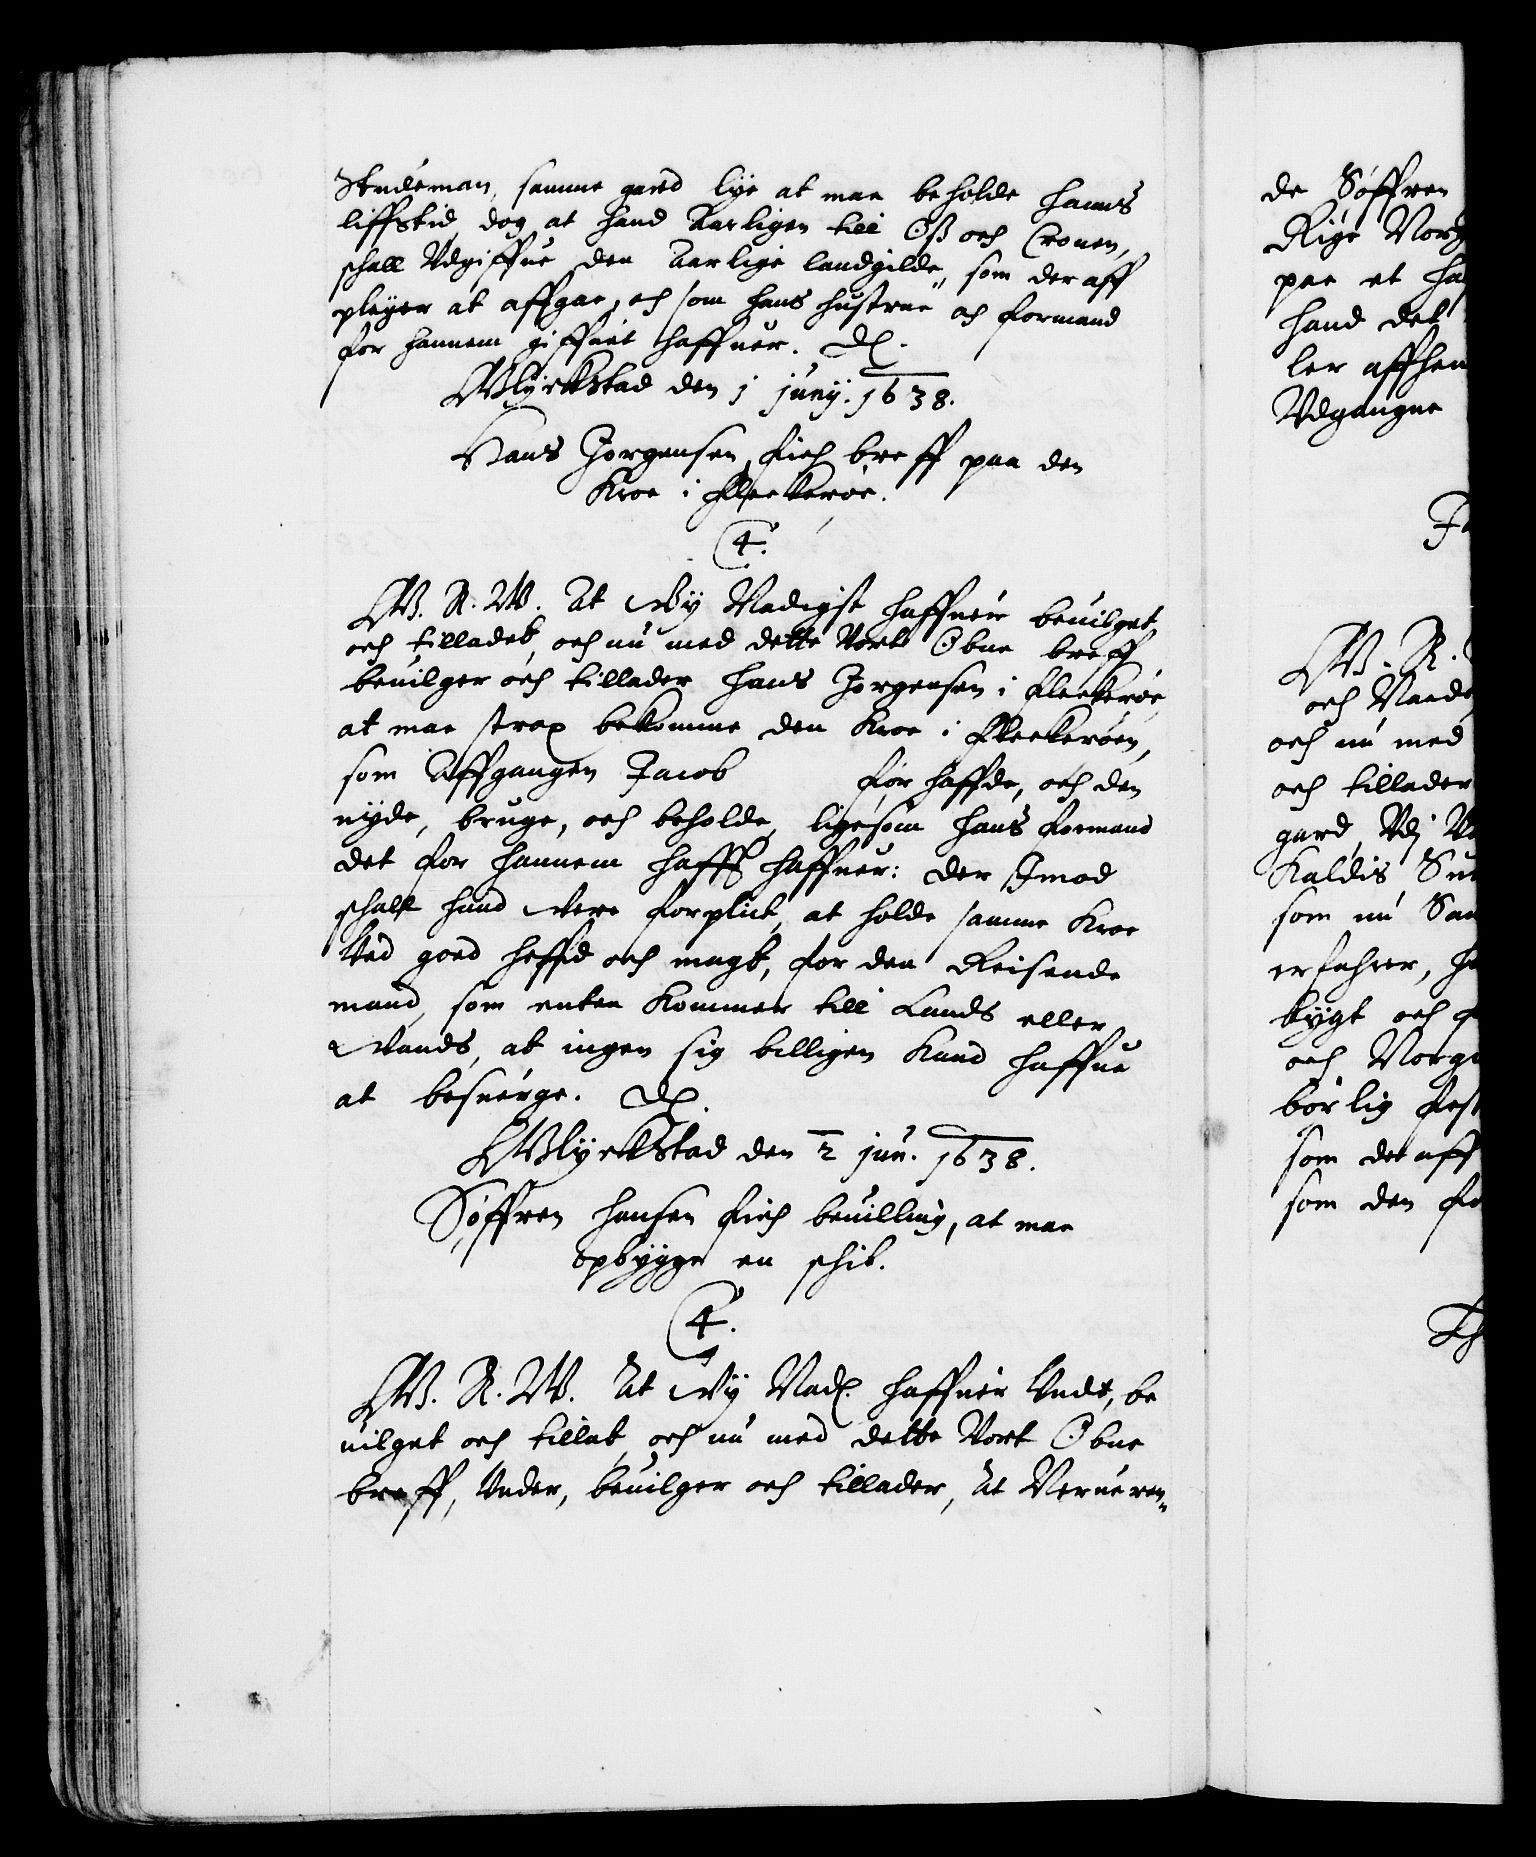 Studeman, samme gaard lye at maa beholde hannis
liffstid, dog at hand Aarligen till Oß och Cronen,
schall Udgiffue den Aarlige landgilde, som der aff
pleyer at affgaa, och som hans hustrue och formand
for hannem giffuet haffuer. D.
Glyckstad den 1 junij. 1638.
Hans Jorgensen, fich breff paa den
Kroe i Fleckerøe.
C. 4.
G. A. W. At Wy Naadigst haffuer beuilget
och tilladet, och nu med dette Vort Obne breff
beuilger och tillader Hans Jorgensen i Fleckerøe,
at maa strax bekomme den Kroe i Fleckerøen,
som Affgangen Jacob før haffde, och den
nyde, bruge, och beholde, ligesom hans formand
det for hannem hafft haffuer: der Imod
schall hand vere forplict, at holde samme Kroe
Ved goed heffd och magt, for den Reisende
mand, som enten kommer till Lands eller
Vands, at ingen sig billigen kand haffue
at besuerge. D.
Glyckstad den 2 jun. 1638.
Søffren Hansen fich beuilling, at maa
opbygge en schib.
C. 4.
G. A. W. At Wy Naad. haffuer Undt, be
uilget och tillat, och nu med dette Vort Obne
breff, Under, beuilger och tillader, at Nerueren„
de Søffren
Rige Norg
paa et ha
hand det
ler affhen
Udgangne
G. A.
och Naade
och nu med
och tillader
gaard, Udj
Kaldis
som nu
erfahrer,
bygt och
och Norge
børlig fest
som der aff
som den